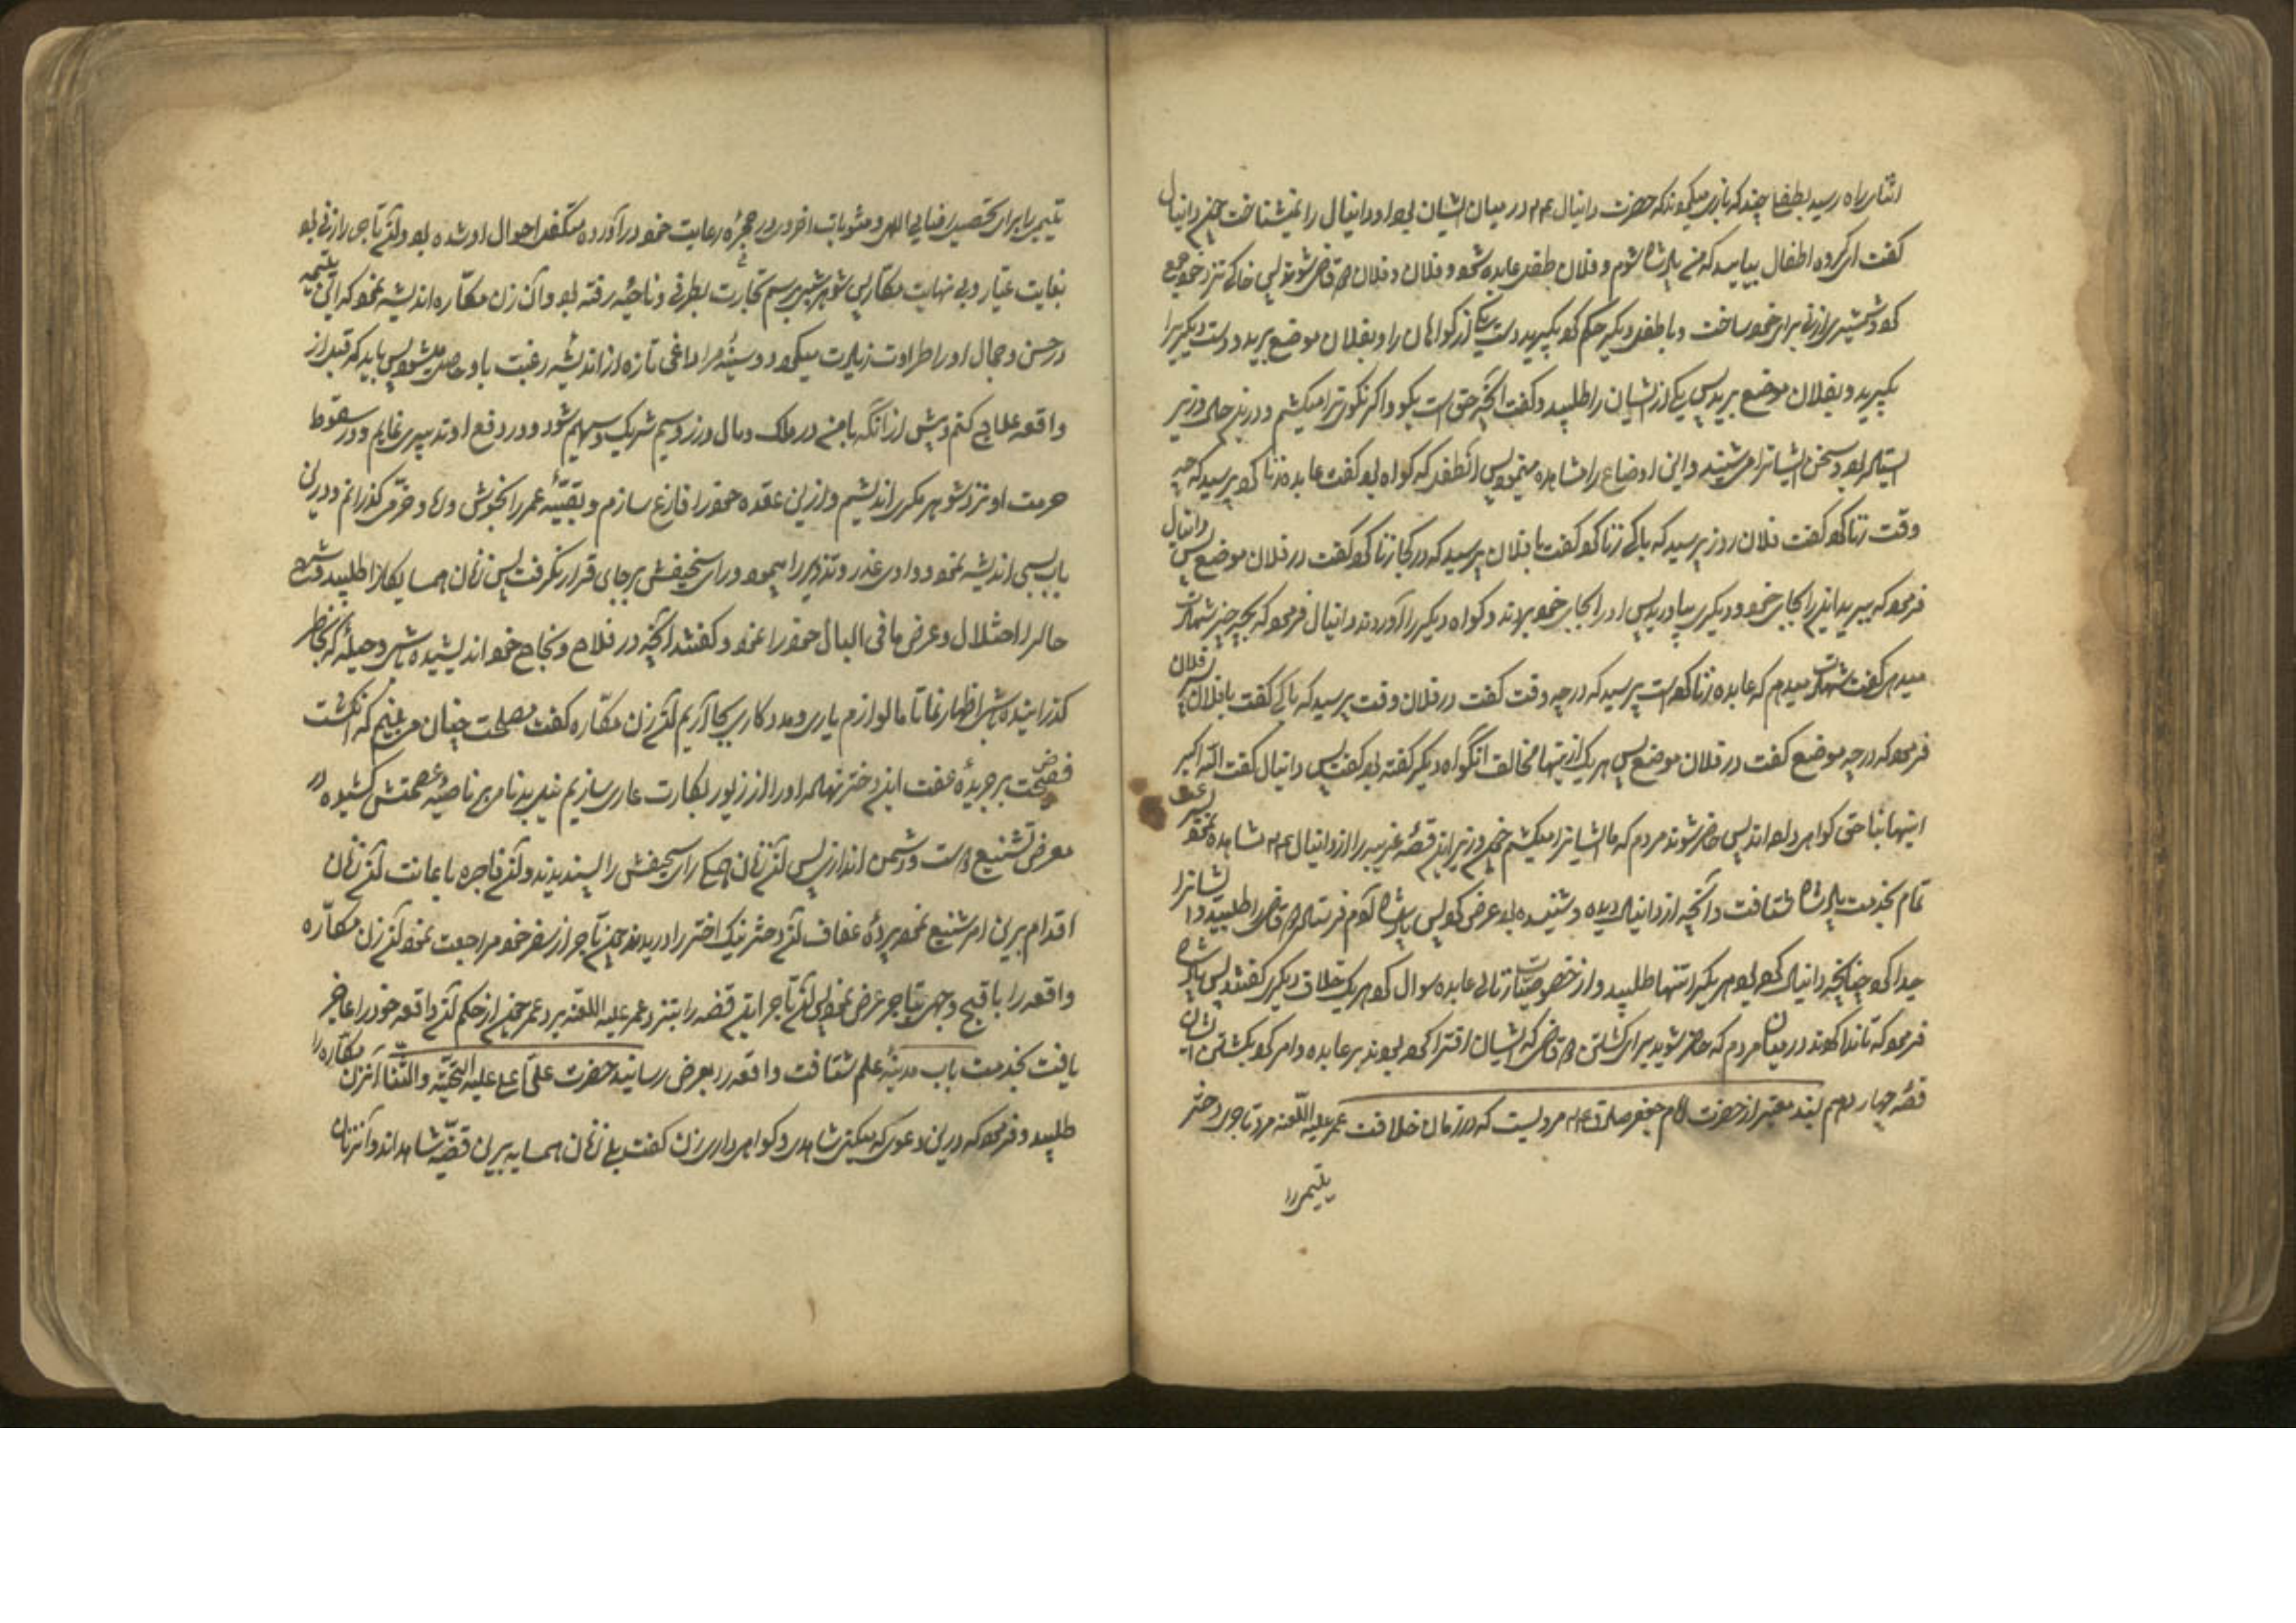 اثنای راه رسید بطفلی چند که بازی میکردند که حضرت دانیال ع م در میان ایشان بود و او دانیال را نمیشناخت چون دانیال
گفت ای گروه اطفال بیایید که من پادشاه شوم و فلان طفل عابده شود و فلان و فلان دو قاضی شوند پس خاکی نزد خود جمع
کرد و شمشیری از نی برای خود ساخت و با طفل دیگر حکم کرد بگیرید دست یکی از گواهان را و بفلان موضع برید و دست دیگری را
بگیرید و بفلان موضع برید پس یکی از ایشان را طلبید و گفت آنچه حق است بگو و اگر نگوئی ترا میکشم و در این حال وزیر
ایستاده بود و سخن ایشانرا می شنید و این اوضاع را مشاهده مینمود پس آنطفل که گواه بود گفت عابده زنا کرد پرسید که چه
وقت زنا کرد گفت فلان روز پرسید که با که زنا کرد گفت با فلان پرسید که در کجا زنا کرد گفت در فلان موضع پس دانیال
فرمود که ببرید این را بجای خود و دیگری بیاورید پس او را بجای خود بردند و گواه دیگر را آوردند دانیال فرمود که بچه چیز شهادت
میدهی گفت شهادت میدهم که عابده زنا کرده است پرسید که در چه وقت گفت در فلان وقت پرسید که با که گفت با فلان بن فلان
فرمود که در چه موضع گفت در فلان موضع پس هر یک از اینها مخالف آنگواه دیگر گفته بود گفت پس دانیال گفت الله اکبر
اینها بناحق گواهی داده اند پس حاضر شوند مردم که ما ایشانرا میکشیم چون وزیر این قصهٔ غریبه را از دانیال ع م مشاهده نمود بسرعت
تمام بخدمت پادشاه شتافت و آنچه از دانیال دیده و شنیده بود عرض کرد پس پادشاه آدم فرستاد دو قاضی را طلبید و ایشانرا
جدا کرد چنانچه دانیال کرده بود هر یک را تنها طلبید و از خصوصیات زنای عابده سوال کرد هر یک خلاف دیگری گفتند پس پادشاه
فرمود که تا ندا کردند در میان مردم که حاضر شوید برای کشتن دو قاضی که ایشان افترا کرده بودند بر عابده و امر کرد بکشتن ایشان
قصهٔ چهاردهم بسند معتبر از حضرت امام جعفر صادق ع م مرویست که در زمان خلافت عمر علیه اللعنه مرد تاجری دختر
یتیمی را
یتیمی را برای تحصیل رضای الهی و مثوبات اخروی در حجرهٔ رعایت خود درآورده متکفل احوال او شده بود و آن تاجر را زنی بود
بغایت عیار و بی نهایت مکار پس شوهرش برسم تجارت بطرفی و ناحیهٔ رفته بود و آن زن مکاره اندیشه نمود که این یتیمه
در حسن و جمال او را طراوت زیادت میگردد و سینهٔ مرا داغی تازه از اندیشه رغبت باو حاصل میشود پس باید که قبل از
واقعه علاجی کنم و پیش از آنکه با من در ملک و مال و زر و سیم شریک و سهیم شود در دفع او تدبیری نمایم و در سقوط
حرمت او نزد شوهر مکری اندیشم و از این عقده خود را فارغ سازم و بقیهٔ عمر را بخوش دلی و خرمی گذرانم و در این
باب بسی اندیشه نمود و وادی غدر و تزویر را پیمود و رای سخیفش بر جای قرار نگرفت پس زنان همسایگان را طلبید و شرح
حال را و عرض ما فی البال خود را نمود و گفتند آنچه در فلاح و نجاح خود اندیشیده باشی و حیلهٔ که بخاطر
گذرانیده باشی اظهار نما تا ما لوازم یاری و مددکاری بجا آریم آن زن مکاره گفت مصلحت چنان می بینم که انگشت
فضیحت بر جریدهٔ عفت این دختر نهاده او را از زیور بکارت عاری سازیم نیل بدنامی بر ناصیهٔ عصمتش کشیده در
معرض تشنیع دوست و دشمن اندازیم پس آن زنان همگی رای سخیفش را پسندیدند و آن فاجره باعانت آن زنان
اقدام بر این امر شنیع نمود پردهٔ عفاف آن دختر نیک اختر را دریدند چون تاجر از سفر خود مراجعت نمود آن زن مکاره
واقعه را باقبح وجهی بتاجر عرض نمود پس آن تاجر این قضه را بنزد عمر علیه اللعنه برد عمر چون از حکم آن واقعه خود را عاجز
یافت بخدمت باب مدینهٔ علم شتافت واقعه را بعرض رسانید حضرت علی علیه التحیه والثنا آنزن مکاره را
طلبید و فرمود که در این دعوی که میکنی شاهدی و گواهی داری زن گفت بلی زنان همسایه بر این قضیه شاهداند و آنزنان